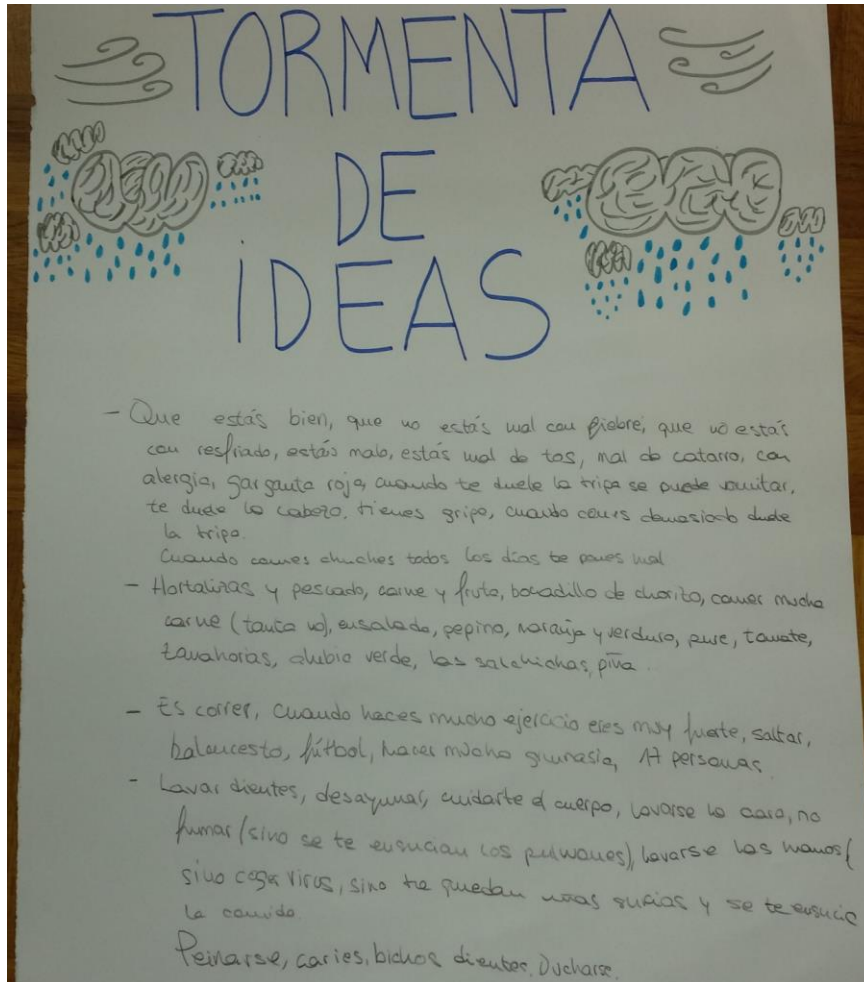 TORMENTA
DE
IDEAS
- Que estás bien, que no estás mal con fiebre, que no estás
con resfriado, estáis malo, estás mal de tos, mal de catarro, con
alergia, garganta roja, cuando te duele la tripa se puede vomitar,
te duele la cabeza, tienes gripe, cuando comes demasiado duele
la tripa.
Cuando comes chuches todos los días te pones mal
- Hortalizas y pescado, carne y fruta, bocadillo de chorizo, comer mucha
carne (tanta no), ensalada, pepino, naranja y verdura, pure, tomate,
zanahorias, alubia verde, las salchichas, piña.
- Es correr, cuando haces mucho ejercicio eres muy fuerte, saltar,
baloncesto, fútbol, hacer mucha gimnasia, 17 personas.
- Lavar dientes, desayunar, cuidarte el cuerpo, lavarse la cara, no
fumar (sino se te ensucian los pulmones), lavarse las manos (
sino virus, sino te quedan sucias y se te ensucia
la comida.
Peinarse, caries, bichos dientes, Ducharse.